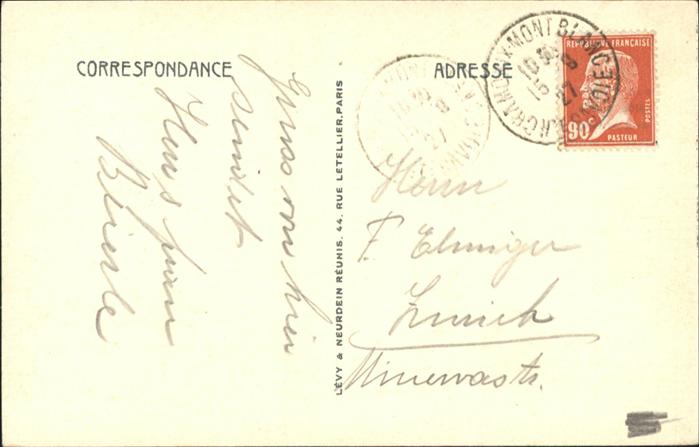 CORRESPONDANCE
Gruss von hier
sendet
Hans
ADRESSE
CHAMONIX-MONT BLANC
16 30
15 8
27
REPUBLIQUE FRANÇAISE
90c
PASTEUR
POSTES
LÉVY & NEURDEIN RÉUNIS, 44, RUE LETELLIER, PARIS
Herrn
F. Elmiger
Zürich
Minervastr.